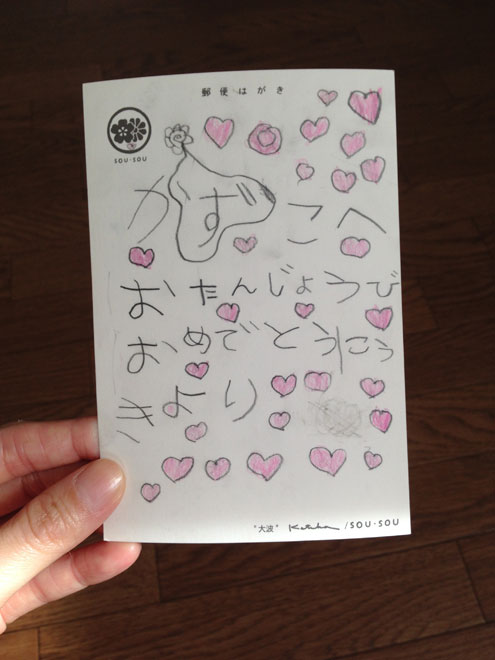 郵便はがき
SOU・SOU
かずこへ
おたんじょうび
おめでとう こう
きより
"大波" /SOU・SOU